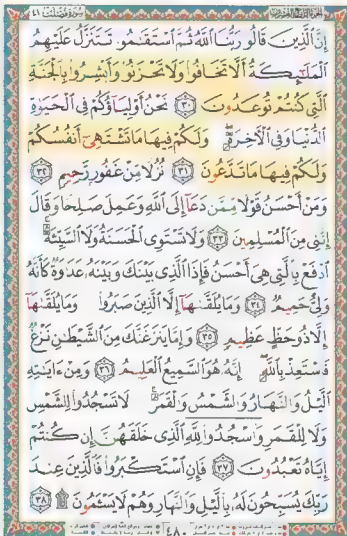 سورة فصلت ٤١
إِنَّ الَّذِينَ قَالُوا رَبُّنَا اللَّهُ ثُمَّ اسْتَقَامُوا تَتَنَزَّلُ عَلَيْهِمُ
الْمَلَائِكَةُ أَلَّا تَخَافُوا وَلَا تَحْزَنُوا وَأَبْشِرُوا بِالْجَنَّةِ
الَّتِي كُنْتُمْ تُوعَدُونَ ٣٠ نَحْنُ أَوْلِيَاؤُكُمْ فِي الْحَيَاةِ
الدُّنْيَا وَفِي الْآخِرَةِ وَلَكُمْ فِيهَا مَا تَشْتَهِي أَنْفُسُكُمْ
وَلَكُمْ فِيهَا مَا تَدَّعُونَ ٣١ نُزُلًا مِنْ غَفُورٍ رَحِيمٍ ٣٢
وَمَنْ أَحْسَنُ قَوْلًا مِمَّنْ دَعَا إِلَى اللَّهِ وَعَمِلَ صَالِحًا وَقَالَ
إِنَّنِي مِنَ الْمُسْلِمِينَ ٣٣ وَلَا تَسْتَوِي الْحَسَنَةُ وَلَا السَّيِّئَةُ
ادْفَعْ بِالَّتِي هِيَ أَحْسَنُ فَإِذَا الَّذِي بَيْنَكَ وَبَيْنَهُ عَدَاوَةٌ كَأَنَّهُ
وَلِيٌّ حَمِيمٌ ٣٤ وَمَا يُلَقَّاهَا إِلَّا الَّذِينَ صَبَرُوا وَمَا يُلَقَّاهَا
إِلَّا ذُو حَظٍّ عَظِيمٍ ٣٥ وَإِمَّا يَنْزَغَنَّكَ مِنَ الشَّيْطَانِ نَزْغٌ
فَاسْتَعِذْ بِاللَّهِ إِنَّهُ هُوَ السَّمِيعُ الْعَلِيمُ ٣٦ وَمِنْ آيَاتِهِ
اللَّيْلُ وَالنَّهَارُ وَالشَّمْسُ وَالْقَمَرُ لَا تَسْجُدُوا لِلشَّمْسِ
وَلَا لِلْقَمَرِ وَاسْجُدُوا لِلَّهِ الَّذِي خَلَقَهُنَّ إِنْ كُنْتُمْ
إِيَّاهُ تَعْبُدُونَ ٣٧ فَإِنِ اسْتَكْبَرُوا فَالَّذِينَ عِنْدَ
رَبِّكَ يُسَبِّحُونَ لَهُ بِاللَّيْلِ وَالنَّهَارِ وَهُمْ لَا يَسْأَمُونَ ۩ ٣٨
٤٨٠